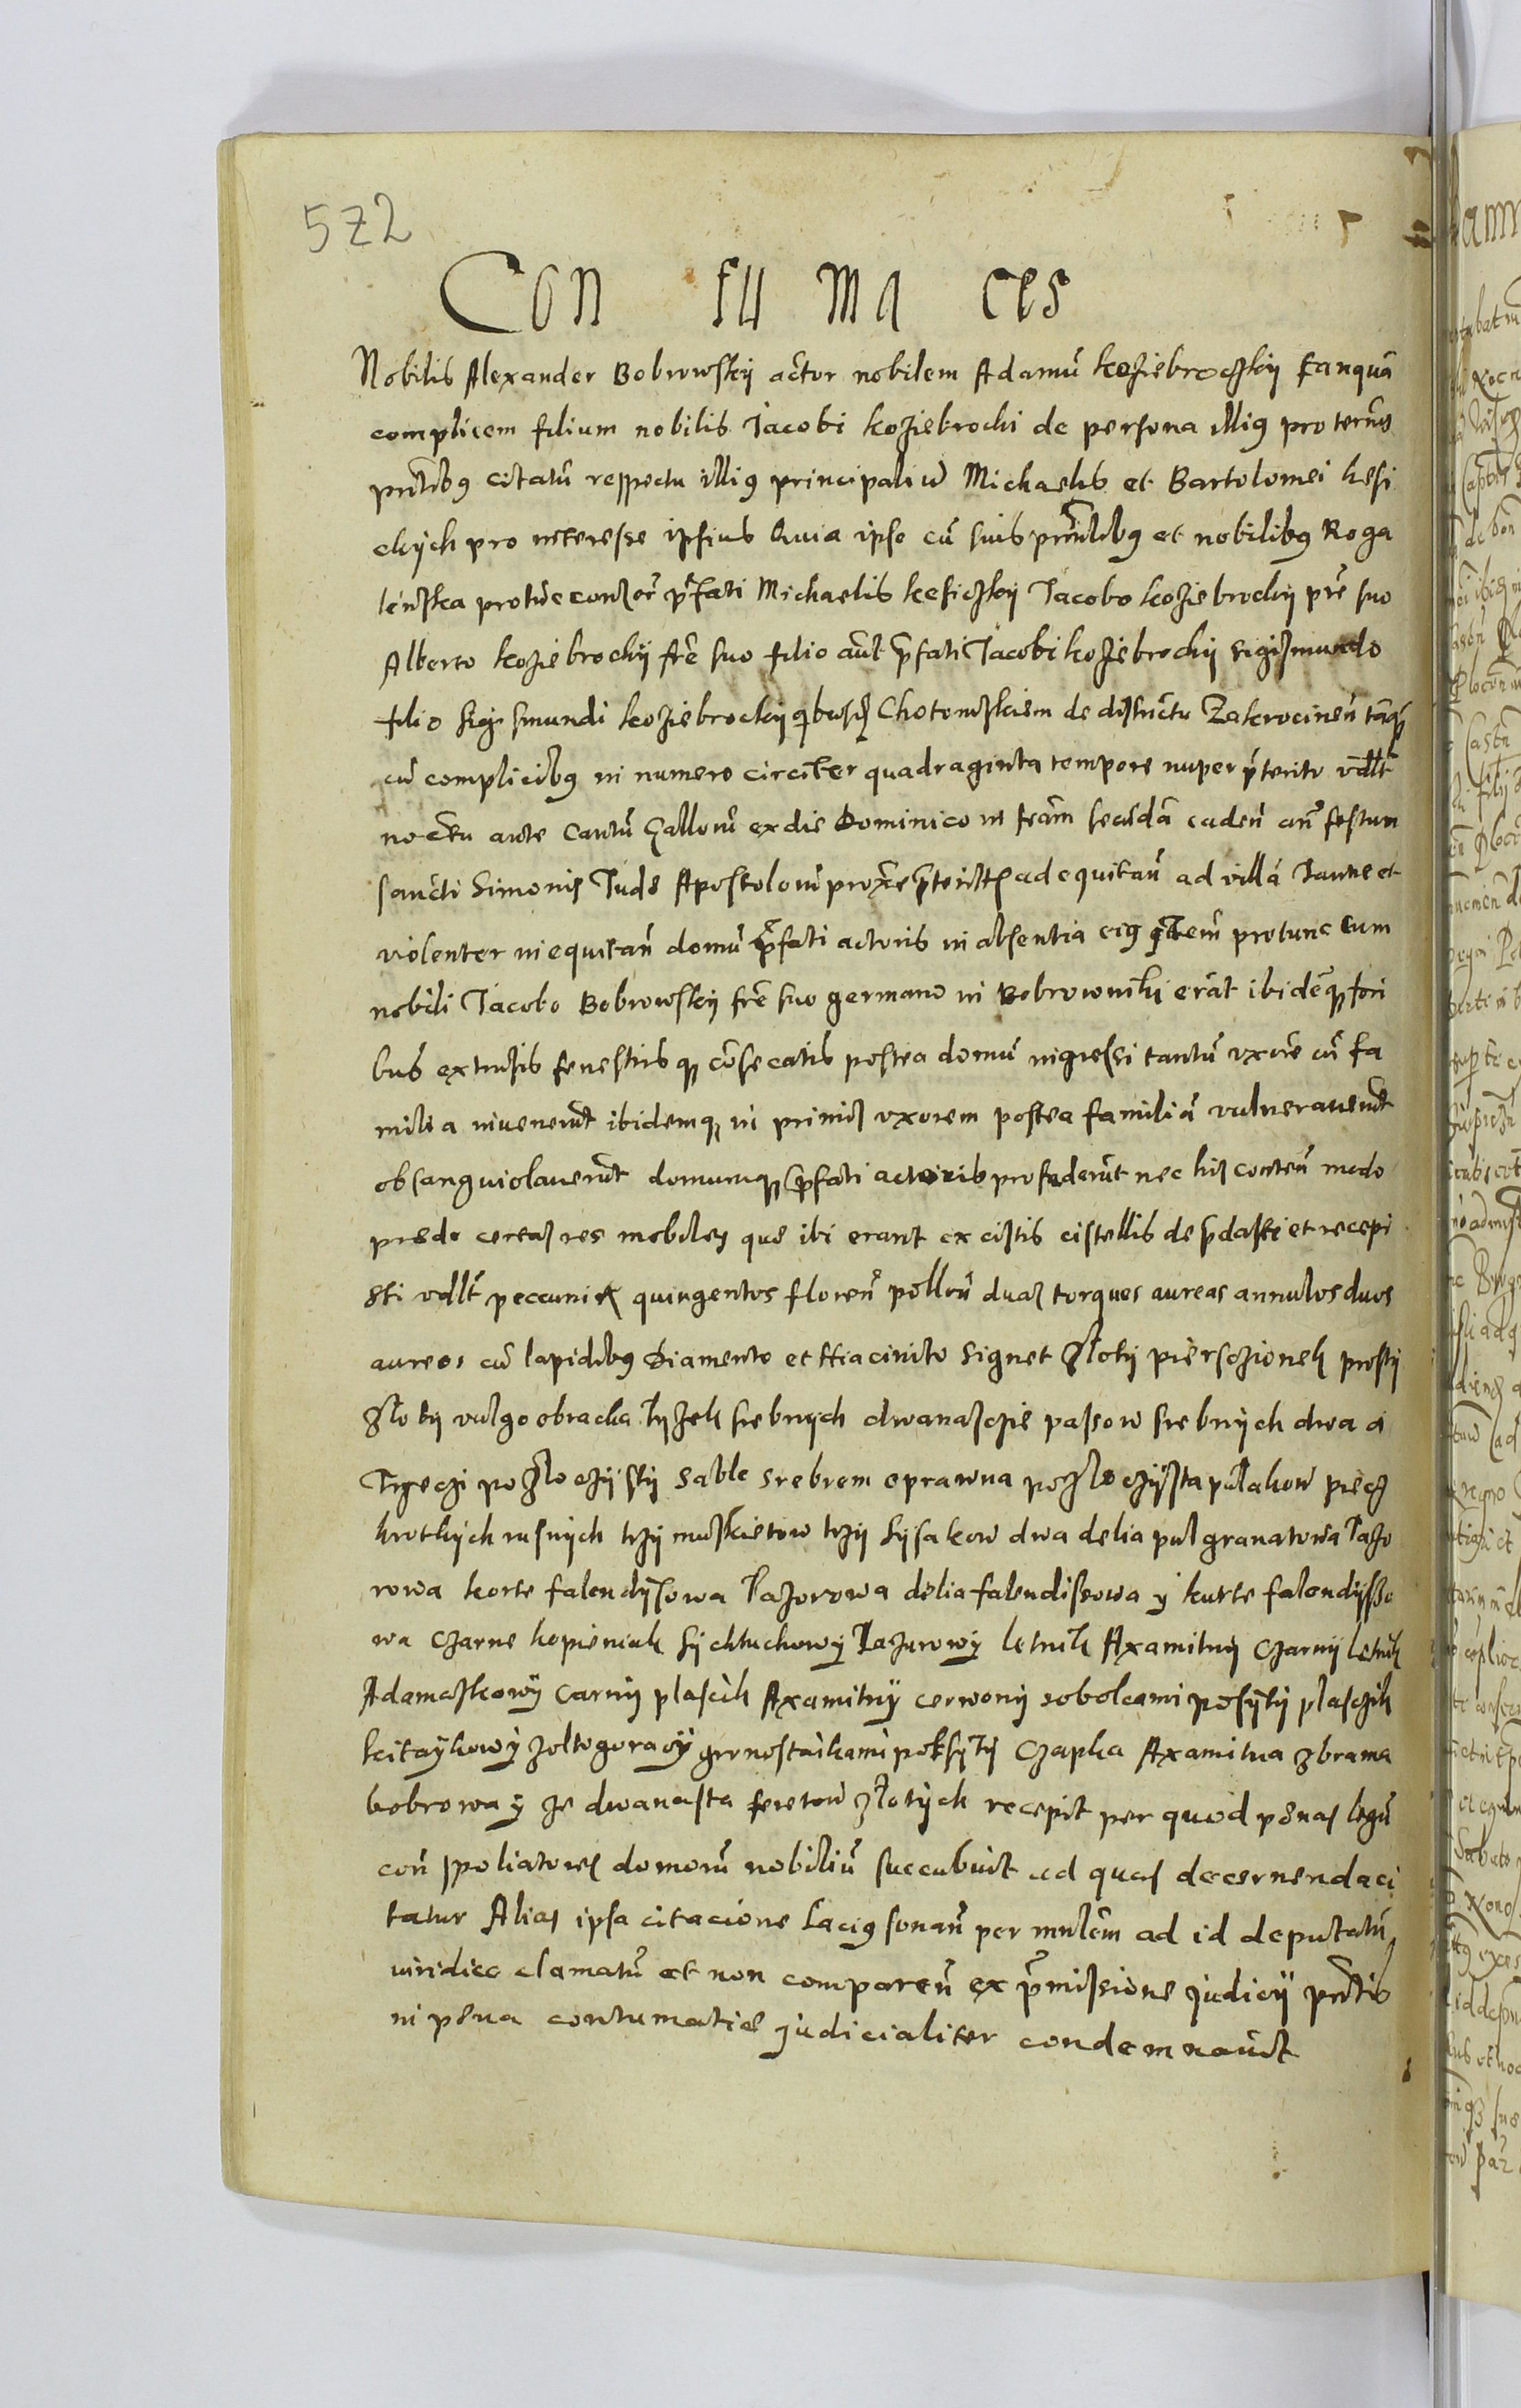 572
Con tu ma ces
Nobilis Alexander Bobrowskij actor nobilem Adamū Koziebroczkij tanquā
complicem filium nobilis Jacobi Koziebrocki de persona illig pro terris
pn̄tibg citatū respectu illig principaliū Michaelis et Bartolomei Kesi
ckych pro interesse ipsius Quia ipse cū suis pn̄cilibg et nobilibg Roga
lenska protūc p̄fati Michaelis Kesiczkij Jacobo Koziebrockij p̄re suo
Alberto Koziebrockij fr̄e suo filio aūt p̄fati Jacobi Koziebrockij Sigizmundo
filio Sigismundi Koziebrockij Chotomskiem de districtu Zakrocinen̄ tāq
cū complicibg in numero circiter quadraginta tempore nuper p̄terito vdlt̄
noctu ante Cantū Gallorū ex die Dominico in feām secūdā caden̄ an̄ festum
sancti Simonis Jude Apostolorū prox̄e p̄teriti adequitan̄ ad villā et
violenter inequitan̄ domū p̄fati actoris in absentia eig protunc cum
nobili Jacobo Bobrowskij fr̄e suo germano in Bobrowniki erāt ibidēq fori
bus extrusis fenestrisq cōsecatis postea domū ingressi tantū vxorē cū fa
milia invenerūt ibidemq in primis vxorem postea familiā vulneraverūt
obsanguiolaverūt domumq p̄fati actoris nec his conten̄ modo
predo certas res mobiles que ibi erant ex cistis cistellis dep̄dasti et recepi
sti vdlt̄ peccunia quingentos floren̄ duas torques aureas annulos duos
aureos cū lapidibg Diamento et Hiacinito Signet złotij piersczionek prostij
złotij vulgo obracka łyżek srebnych dwanascзie passow srebnych dwa a
Trzeczi pozłoczijstij Sable srebrem oprawna pozłoczijsta pułakow pięcz
krotkych rusnych trzij muskietow trzij Sysakow dwa delia pul granatowa Lazo
rowa korte falendysowa Lazorowa delia falendissowa y kurte falendysso
wa czarne kopieniak sychtuchowy Lazurowy letnik Axamitny czarnij letnik
Adamaskowy carny plascik Axamitny cerwony sobolcami posytij plasczik
kitaykowy zoltogoracy gronostaikami Czapka Axamitna zbrama
bobrowa y ze dwanasta feretow złotych recepit per quod penas legū
con̄ spoliatores domorū nobiliū succubuit ad quas decernenda ci
tatur Alias ipsa citacione lacig sonan̄ per ad id deputatū
viridice clamatū et non comparen̄ ex p̄missione judicij pn̄tis
in pena contumatie judicialiter condemnavit